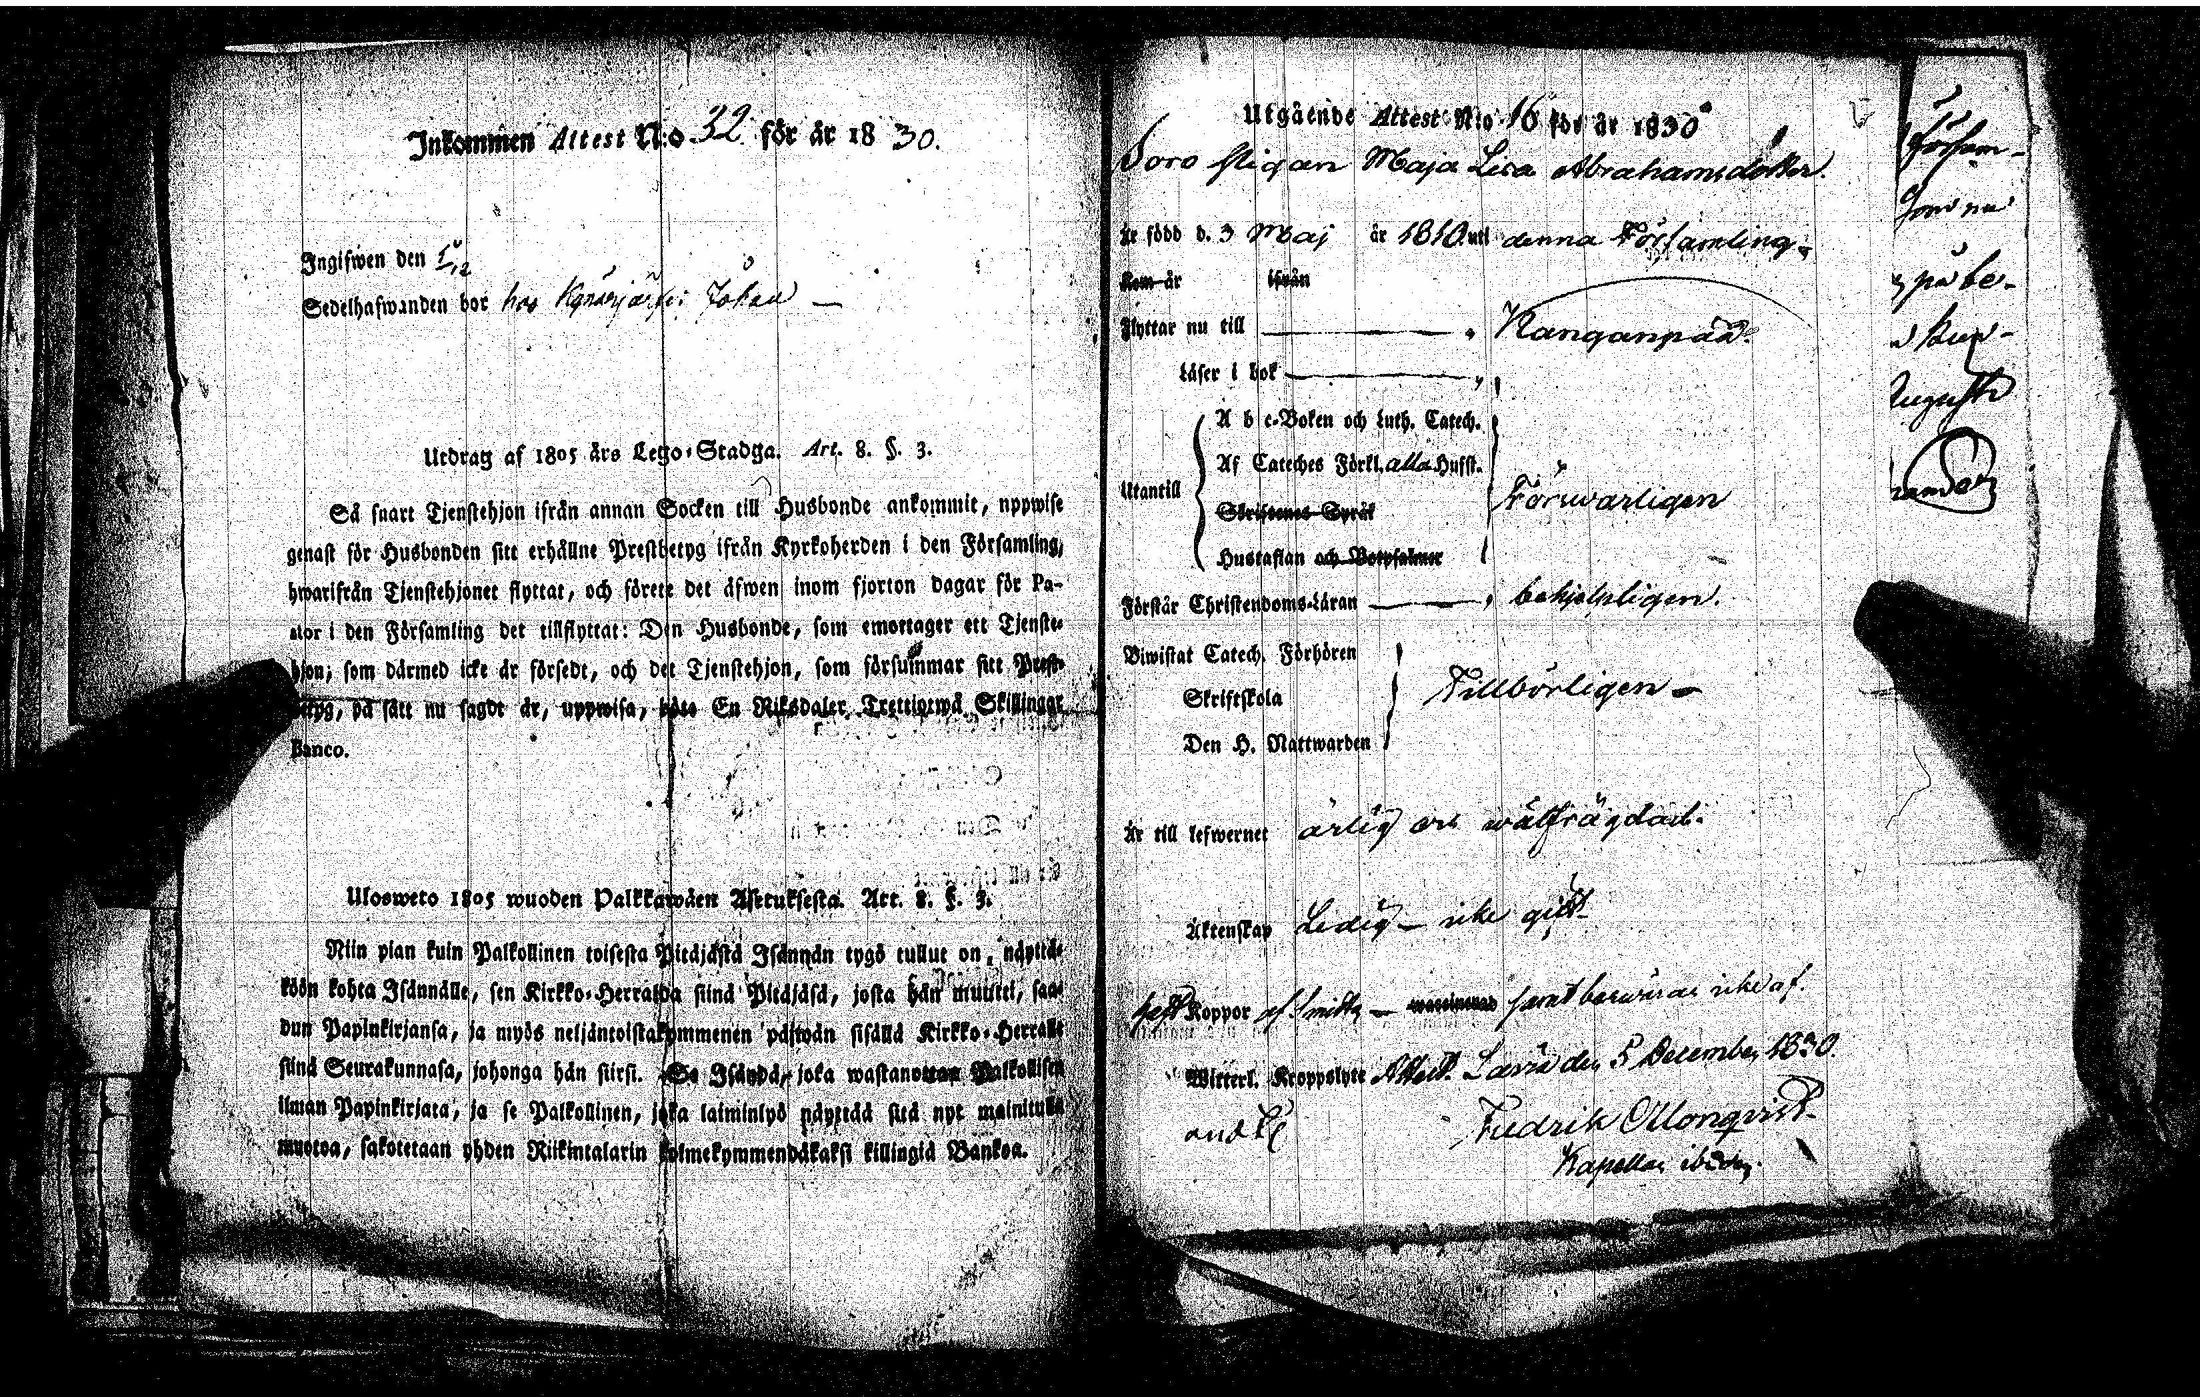 Inkommen Attest N:o 32 för år 1830.
Ingifwen den 5/12
Sedelhafwanden bor hos
Utdrag af 1805 års Lego-Stadga. Art. 8. §. 3.
Så snart Tjenstehjon ifrån annan Socken till Husbonde ankommit, uppwise
genast för Husbonden sitt erhållne Prestbetyg ifrån Kyrkoherden i den Församling,
hwarifrån Tjenstehjonet flyttat, och förete det äfwen inom fjorton dagar för Pa-
stor i den Församling det tillflyttat: Den Husbonde, som emottager ett Tjenste-
hjon; som därmed icke är försedt, och det Tjenstehjon, som försummar sitt Prest-
betyg, på sätt nu sagdt är, uppwisa, böte En Riksdaler Trettiotwå Skillingar
Banco.
Ulosweto 1805 wuoden Palkkawäen Asetuksesta. Art. 8. §. 3.
Niin pian kuin Palkollinen toisesta Pitäjästä Isännän tygö tullut on, näyttä-
köön kohta Isännälle, sen Kirkko-Herralda siinä Pitäjäsä, josta hän muutti, saa-
dun Papinkirjansa, ja myös neljäntoistakymmenen päiwän sisällä Kirkko-Herralle
siinä Seurakunnasa, johonga hän siirsi. Se Isändä, joka wastanottaa Palkollisen
ilman Papinkirjata, ja se Palkollinen, joka laiminlyö näyttää sitä nyt mainitulla
muotoa, sakotetaan yhden Riikintalarin kolmekymmendäkaksi killingiä Bankoa.
Utgående Attest N:o 16 för år 1830
Soro Pigan Maja Lisa Abrahamsdotter.
Är född d. 3 Maj år 1810 uti denna Församling,
Kom år ifrån
Flyttar nu till Kanganpää.
Läser i bok
A b c-Boken och Luth. Catech.
Af Cateches Förkl. alla Husst.
Utantill
Förswarligen
Skriftenes Språk
Hustaflan och Botpsalmer
Förstår Christendoms-Läran behjelpligen.
Biwistat Catech. Förhören
Skriftskola Tillbörligen
Den H. Nattwarden
Är till lefwernet ärlig och wälfrägdad.
Äktenskap Ledig – icke gift
haft Koppor af Smitta – samt beswäras icke af.
Witterl. Kroppslyte Attest. Lavia den 5 December 1830.
Fredrik Clonqvist
Kapellan ibidem.
Församl-
på be-
Augusti